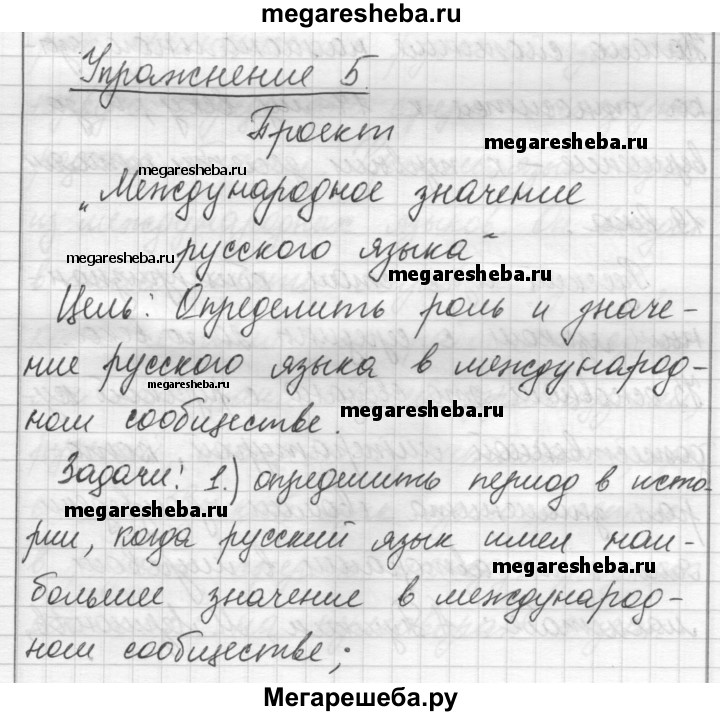 megaresheba.ru
Упражнение 5.
Проект
megaresheba.ru
megaresheba.ru
„Международное значение
русского языка“
megaresheba.ru
megaresheba.ru
Цель: Определить роль и значе-
ние русского языка в международ-
megaresheba.ru
ном сообществе.
megaresheba.ru
Задачи: 1.) определить период в исто-
megaresheba.ru
рии, когда русский язык имел наи-
megaresheba.ru
большее значение в международ-
ном сообществе;
Мегарешеба.ру